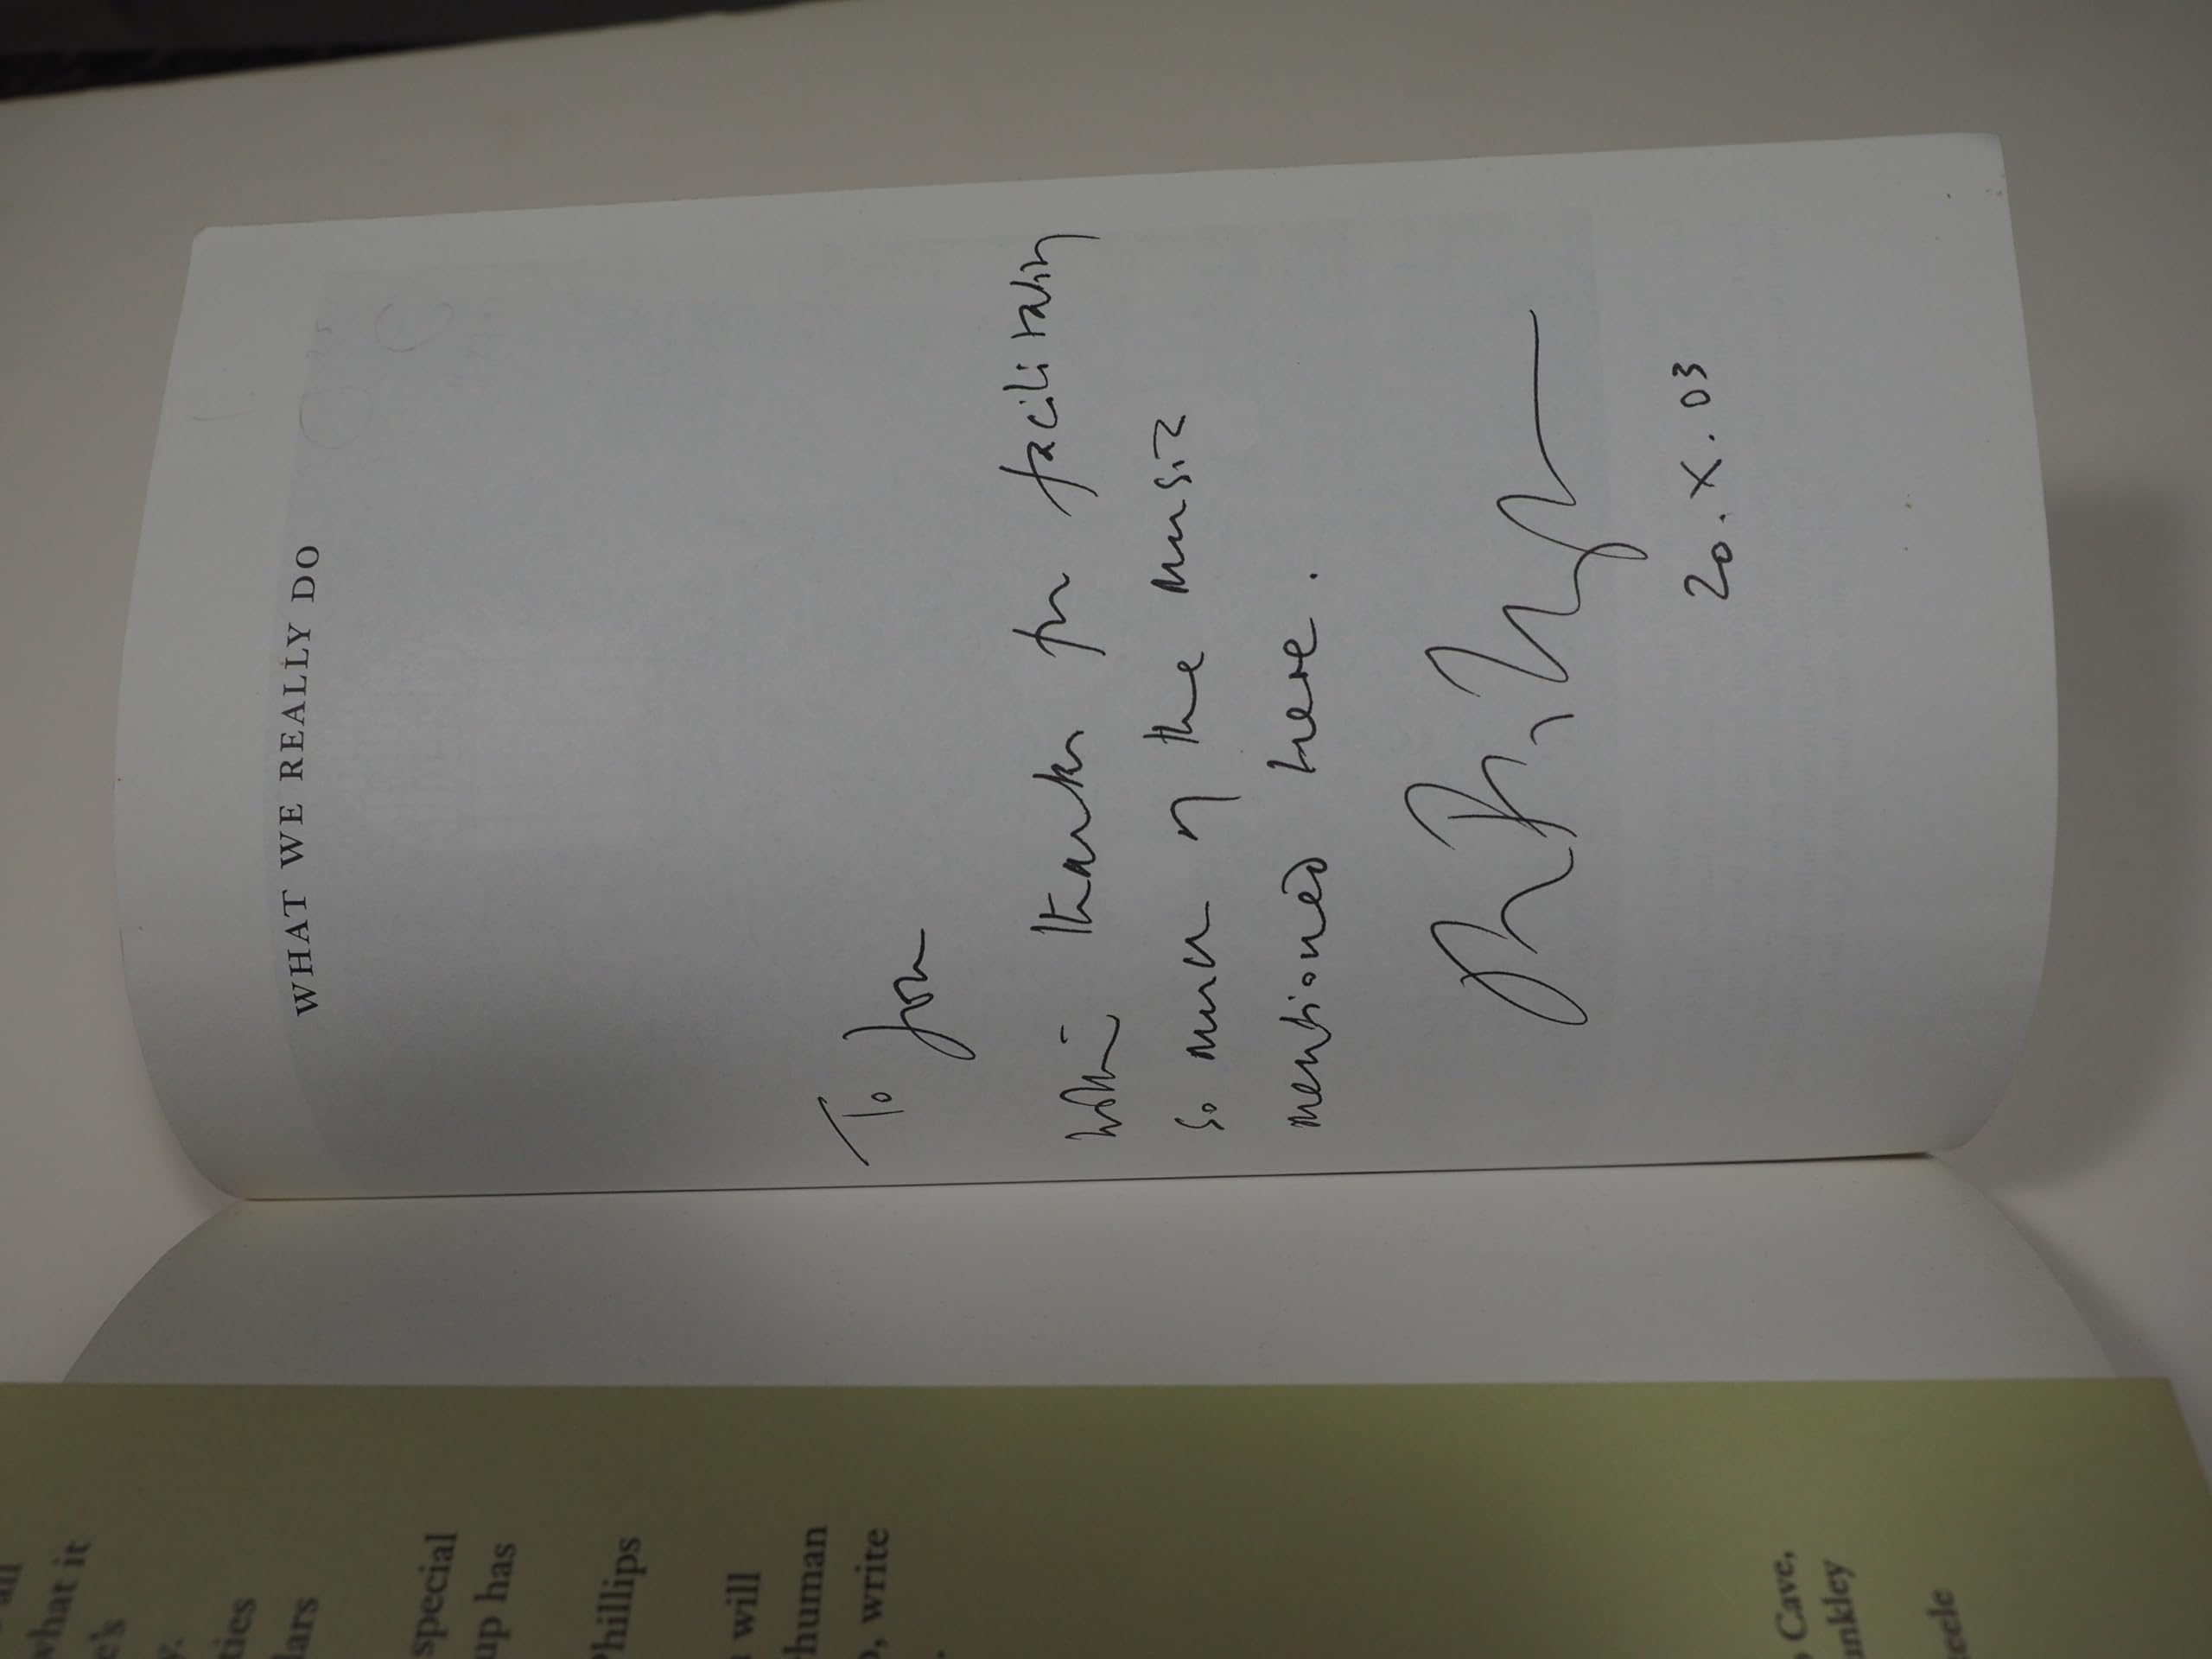 WHAT WE REALLY DO
To Jon
with thanks for facilitating
so much of the music
mentioned here.
20.X.03
what it
special
up has
Phillips
will
human
, write
Cave,